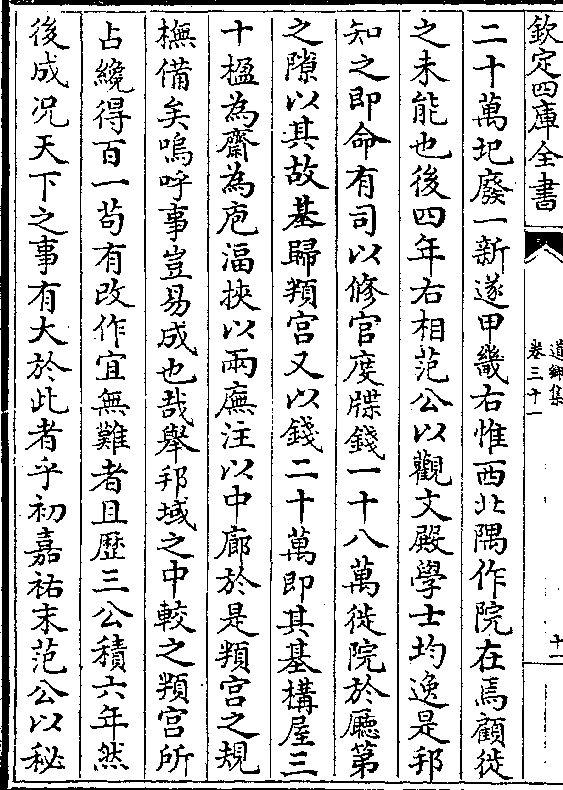 欽定四庫全書
道鄉集
卷三十一
十一
二十萬圯廢一新遂甲畿右惟西北隅作院在焉顧徙
之未能也後四年右相范公以觀文殿學士均逸是邦
知之即命有司以修官度牒錢一十八萬徙院於廳第
之隙以其故基歸頖宫又以錢二十萬即其基構屋三
十楹為齋為庖湢挾以兩廡注以中廊於是頖宫之規
橅備矣嗚呼事豈易成也哉舉邦域之中較之頖宫所
占纔得百一茍有改作宜無難者且歴三公積六年然
後成况天下之事有大於此者乎初嘉祐末范公以秘